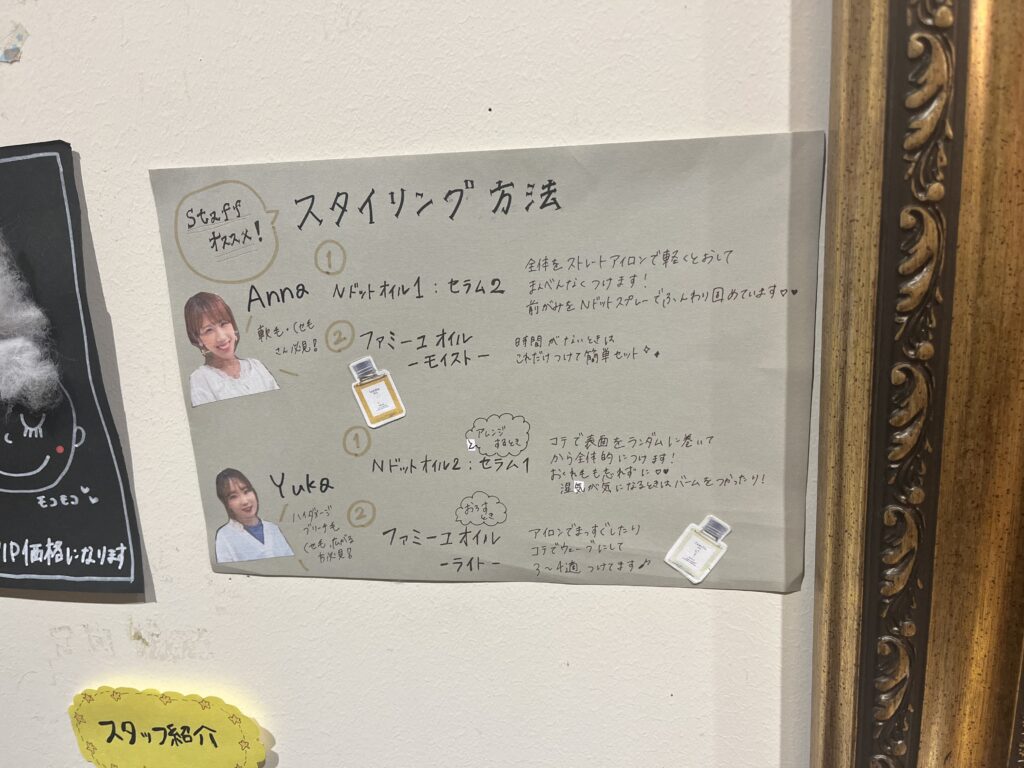 Staff
オススメ!
スタイリング方法
Anna
軟毛・くせも
さん必見!
①
Nドットオイル1:セラム2
全体をストレートアイロンで軽くとおして
まんべんなくつけます!
前がみをNドットスプレーでふんわり固めています♡♥
②
ファミーユオイル
ーモイストー
時間がないときは
これだけつけて簡単セット
Yuka
ハイダメージ
ブリーチも
くせも、広がる
方必見!
①
アレンジ
するとき
Nドットオイル2:セラム1
コテで表面をランダムに巻いて
から全体的につけます!
おくれもも忘れずに♡♥
湿気が気になるときはバームをつかったり!
②
おろす
とき
ファミーユオイル
ーライトー
アイロンでまっすぐしたり
コテでウェーブにして
3〜4適つけてます♪
モコモコ♥
VIP価格になります
スタッフ紹介